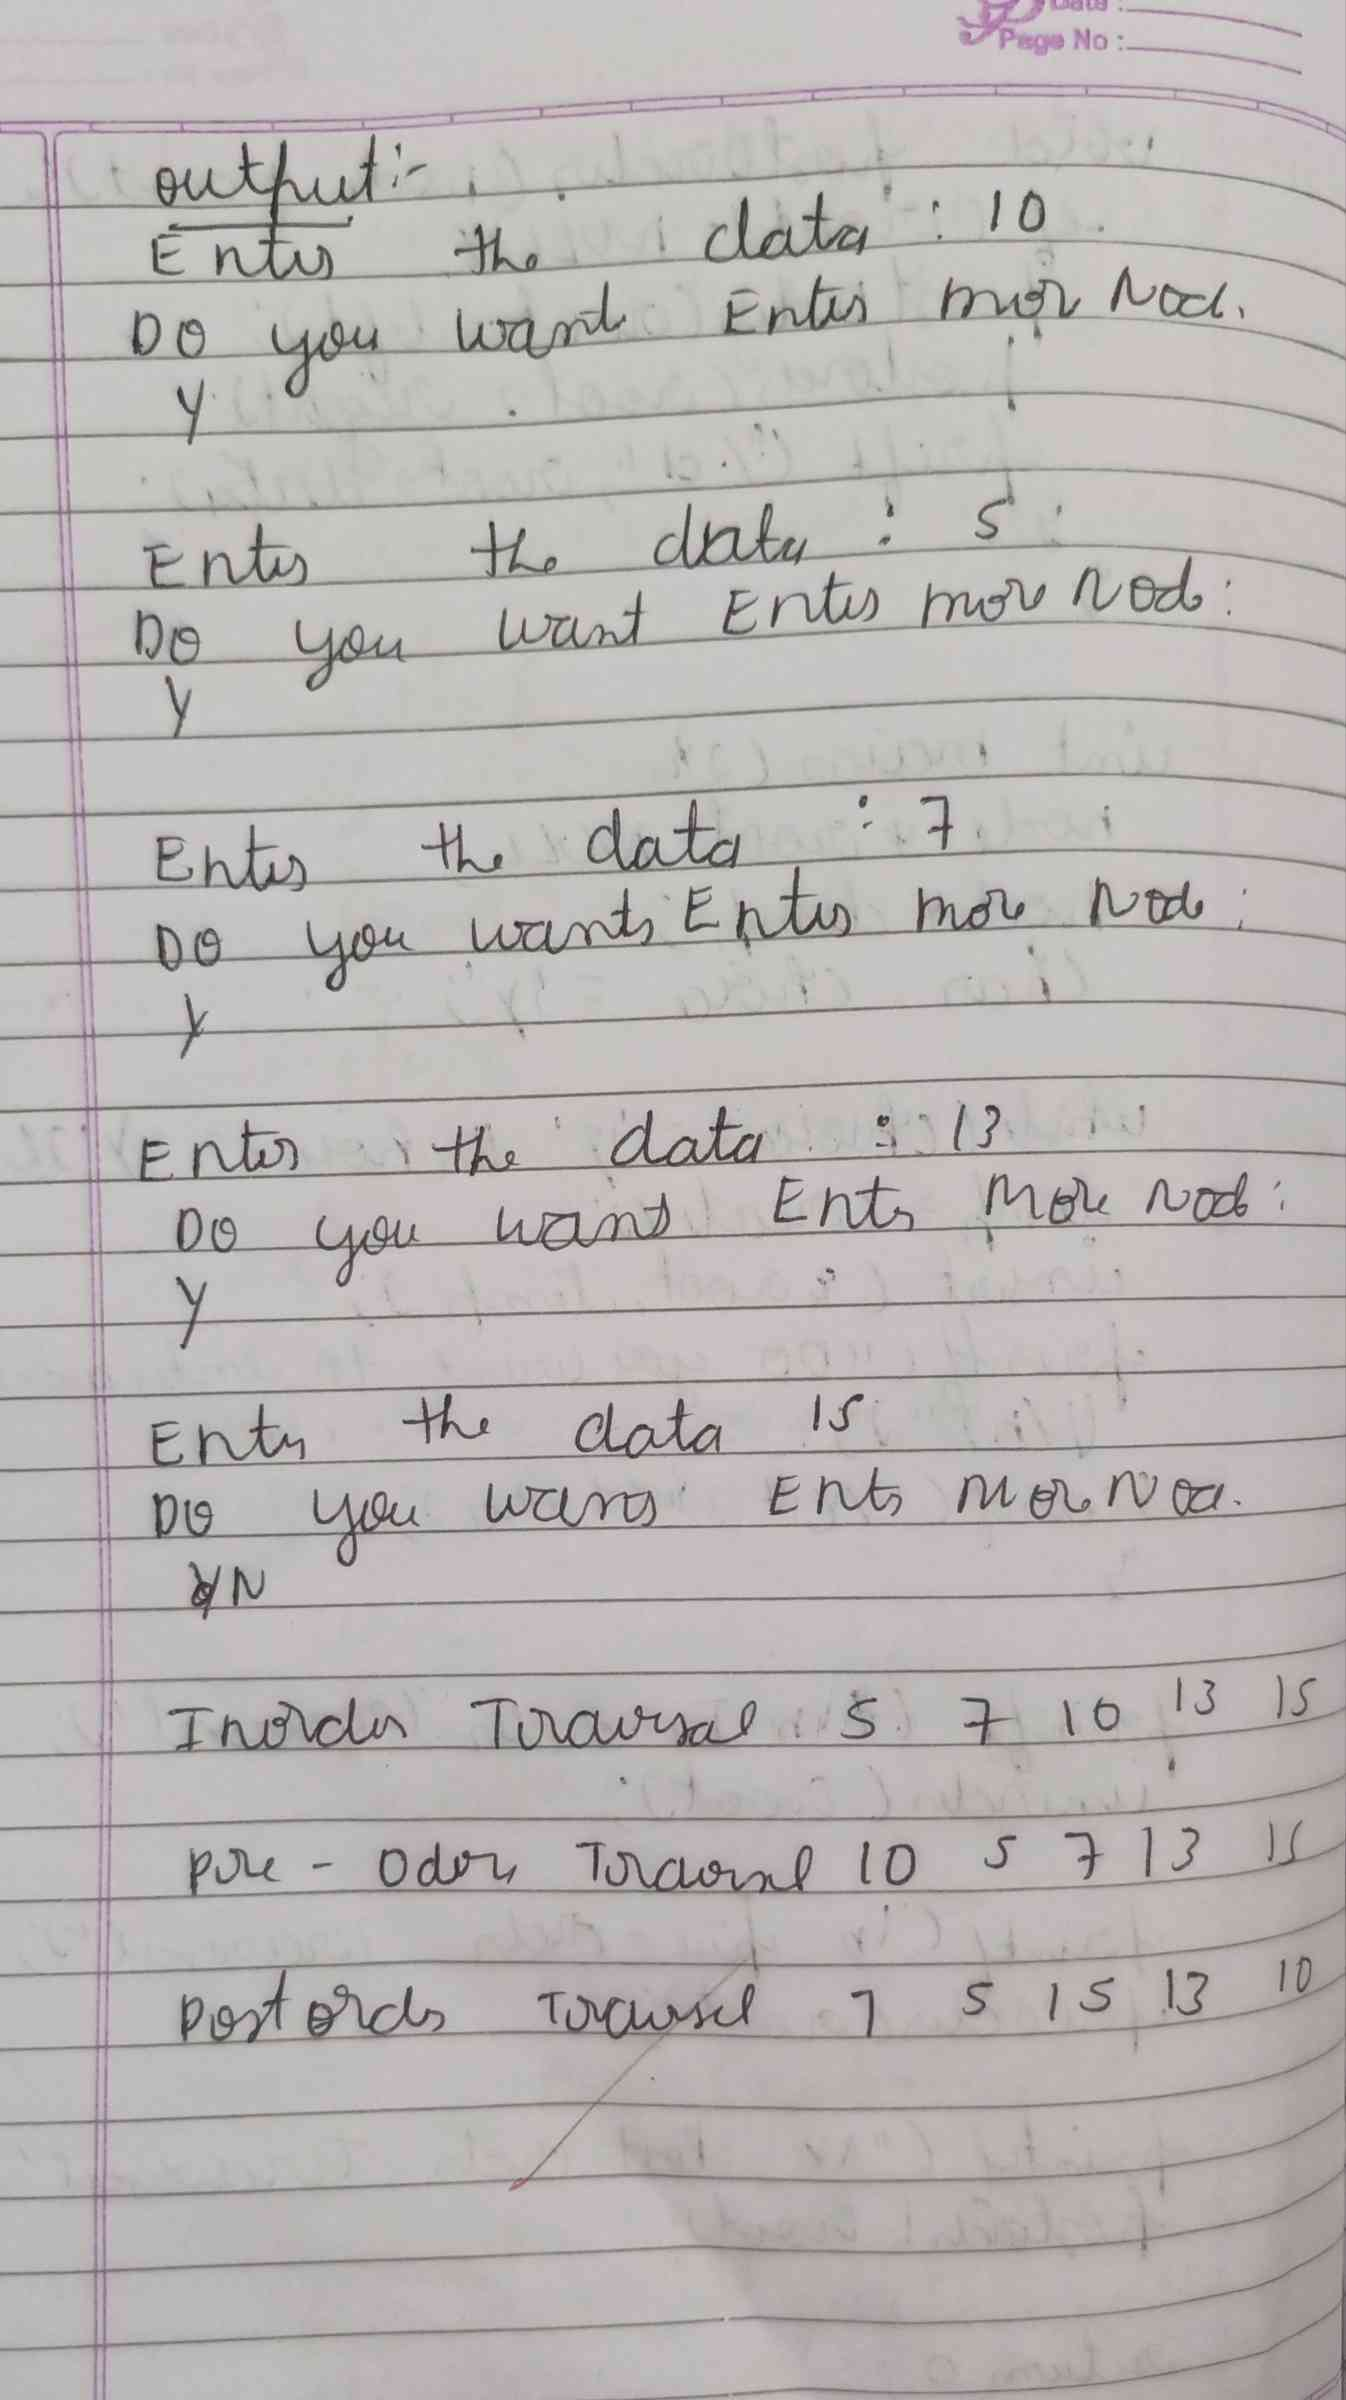 Date :
Page No :
output :-
Enter the data : 10
Do you want Enter mor Nod.
Y
Enter the data : 5
Do you want Enter more Nod :
Y
Enter the data : 7
Do you want Enter more Nod :
Y
Enter the data : 13
Do you want Enter More Nod :
Y
Enter the data 15
Do you want Enter Mor Nod.
N
Inorder Traversal 5 7 10 13 15
pre - Oder Traversal 10 5 7 13 15
Postorder Traversal 7 5 15 13 10